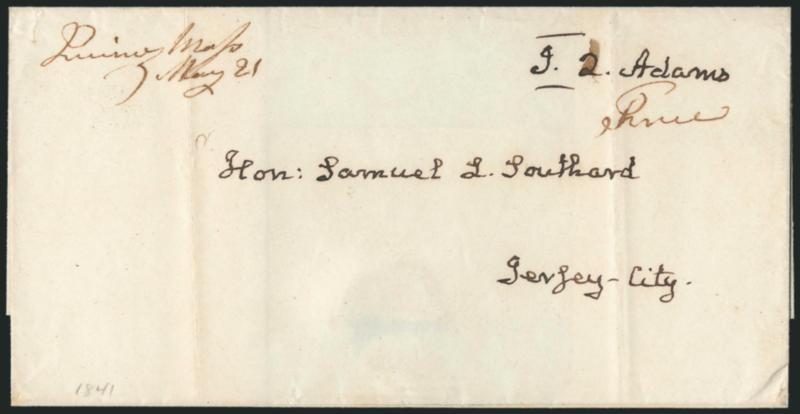 Quincy Mass
May 21
J. Q. Adams
Free
Hon: Samuel L. Southard
Jersey-City.
1841